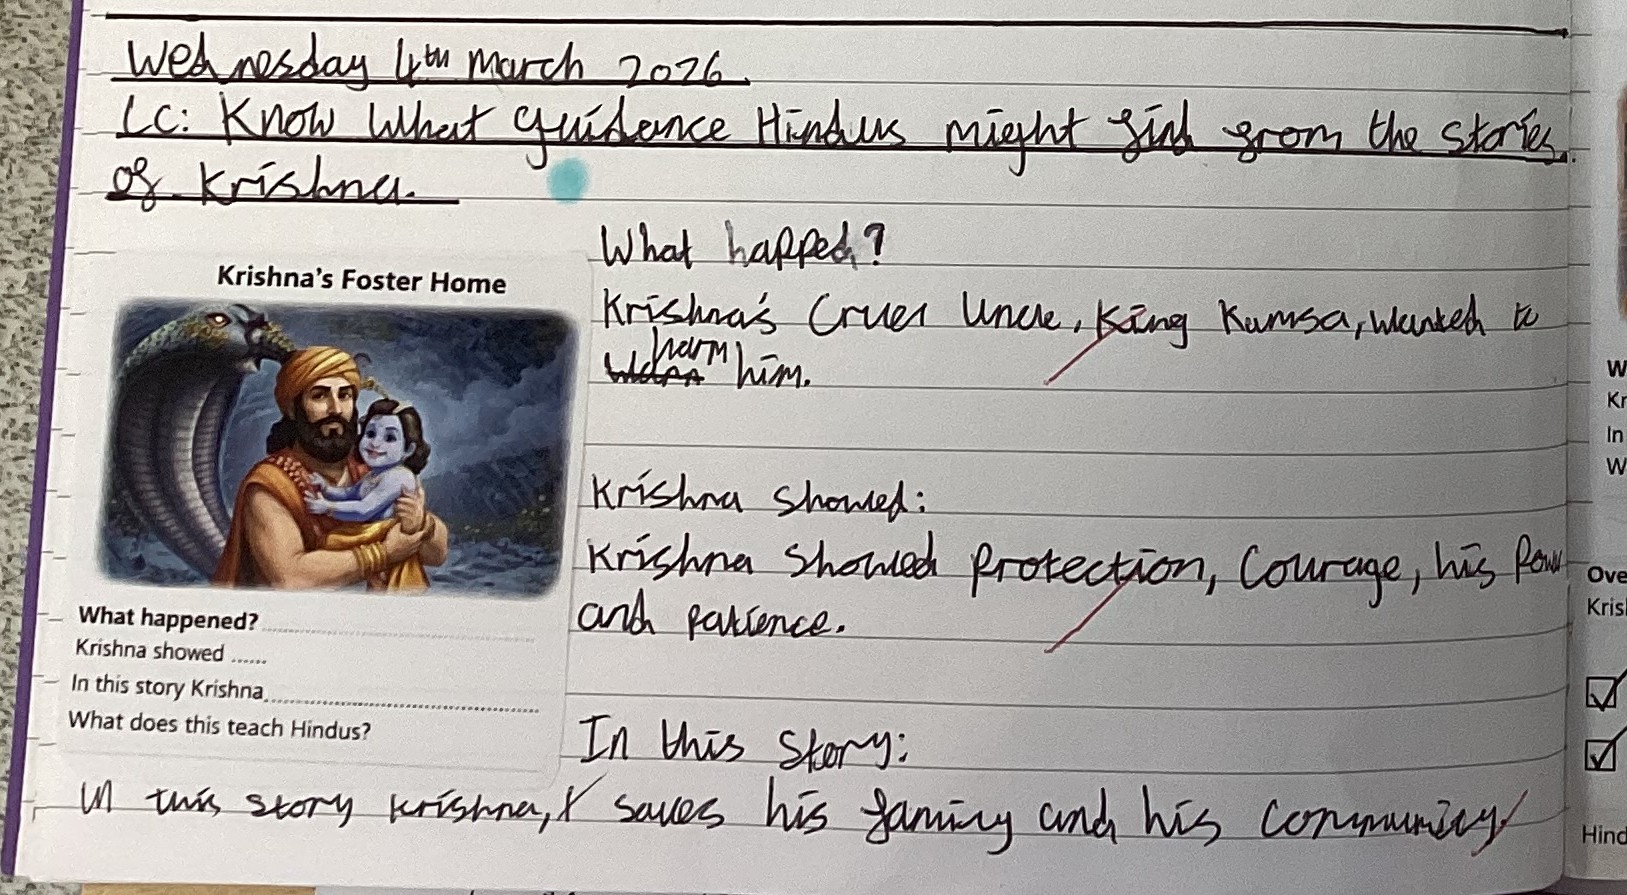 Wednesday 4th march 2026
LC: Know What guidance Hindus might find from the stories
of Krishna.
Krishna's Foster Home
What happened?
Krishna showed ......
In this story Krishna
What does this teach Hindus?
What happed?
Krishna's Cruel Uncle, King Kamsa, wanted to
harm him.
Krishna showed:
Krishna showed protection, Courage, his Power
and patience.
In this story:
In this story Krishna, saves his family and his community
W
Kr
In
W
Ove
Kris
Hind